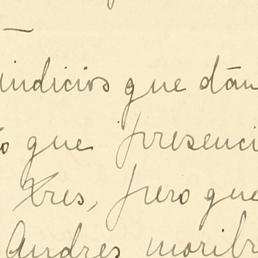 indicios que dan
que presenci
tres, pero que
Andres moribr